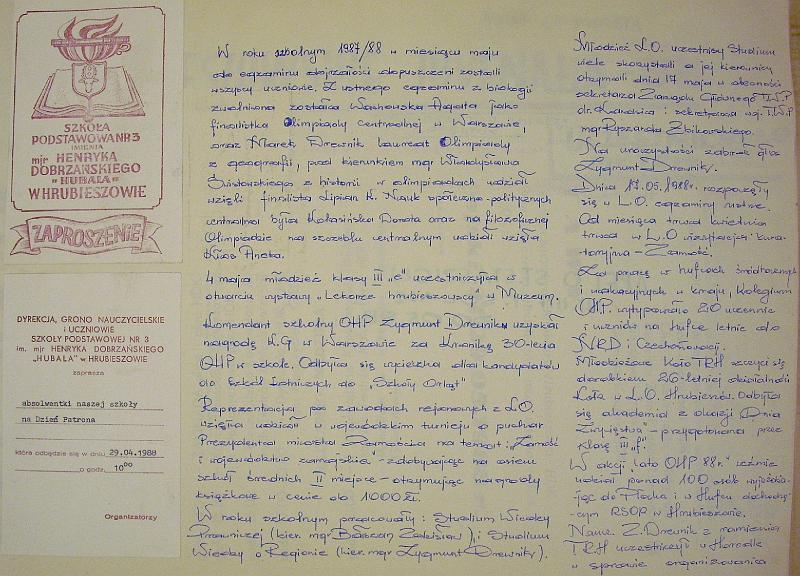 SZKOŁA
PODSTAWOWA NR 3
IMIENIA
mjr HENRYKA
DOBRZAŃSKIEGO
„HUBALA”
W HRUBIESZOWIE
ZAPROSZENIE
DYREKCJA, GRONO NAUCZYCIELSKIE
i UCZNIOWIE
SZKOŁY PODSTAWOWEJ NR 3
im. mjr HENRYKA DOBRZAŃSKIEGO
„HUBALA” w HRUBIESZOWIE
zaprasza
absolwentki naszej szkoły
na Dzień Patrona
która odbędzie się w dniu 29.04.1988
o godz. 10⁰⁰
Organizatorzy
W roku szkolnym 1987/88 w miesiącu maju
do egzaminu dojrzałości dopuszczeni zostali
wszyscy uczniowie. Z ustnego egzaminu z biologii
zwolniona została Wachowska Agata jako
finalistka Olimpiady centralnej w Warszawie,
oraz Marek Drewnik laureat Olimpiady
z geografii, pod kierunkiem mgr Władysława
z historii w olimpiadach udział
wzięli finalista Lipian K. Nauk społeczno-politycznych
centralnej była Kołasińska Dorota oraz na filozoficznej
Olimpiadzie na szczeblu centralnym udział wzięła
Kłos Aneta.
4 maja młodzież klasy III „e” uczestniczyła w
otwarciu wystawy „Lekarze hrubieszowscy” w Muzeum.
Komendant szkolny OHP Zygmunt Drewnik uzyskał
nagrodę K.G w Warszawie za Kronikę 30-lecia
OHP w szkole. Odbyła się wycieczka dla kandydatów
do Szkół Lotniczych do „Szkoły Orląt”
Reprezentacja po zawodach rejonowych z L.O.
wzięła udział w wojewódzkim turnieju o puchar
Prezydenta miasta Zamościa na temat: „Zamość
i województwo zamojskie” - zdobywając na osiem
szkół średnich II miejsce - otrzymując nagrody
książkowe w cenie do 1000 zł.
W roku szkolnym pracowały: Studium Wiedzy
Prawniczej (kier. mgr Zdzisław), i Studium
Wiedzy o Regionie (kier. mgr Zygmunt Drewnik).
Młodzież L.O. uczestnicy Studium
wiele skorzystali a jej kierownicy
otrzymali dnia 17 maja w obecności
sekretarza Zarządu Głównego T.W.P
dr. i sekretarza woj. T.W.P
mgr Ryszarda Zbikowskiego.
Na uroczystości zabrał głos
Zygmunt Drewnik.
Dnia 17.05.1988r. rozpoczęły
się w L.O. egzaminy ustne.
Od miesiąca trwa kwietnia
trwa w L.O wizytacja kura-
toryjna - Zamość.
Za pracę w hufcach śródrocznych
i wakacyjnych w kraju, Kolegium
OHP. wytypowało 20 uczennic
i uczniów na hufce letnie do
NRD i Czechosłowacji.
Młodzieżowe Koło TRH szczyci się
dorobkiem 26-letniej działalności
Koła w L.O. Hrubieszów. Odbyła
się akademia z okazji Dnia
Zwycięstwa - przygotowana przez
klasę III „f”.
W akcji „Lato OHP 88r.” weźmie
udział ponad 100 osób wyjeżdża-
jąc do Płocka i w Hufcu dochodzą-
cym RSOP w Hrubieszowie.
Naucz. Z. Drewnik z ramienia
TRH uczestniczył w Horodle
w sprawie organizowania